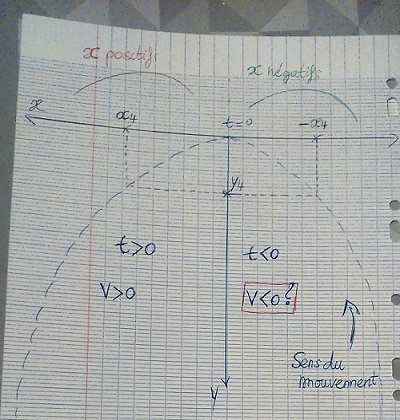 x positifs
x négatifs
x
x4
t=0
-x4
y4
t>0
t<0
V>0
V<0?
Sens du
mouvement
y